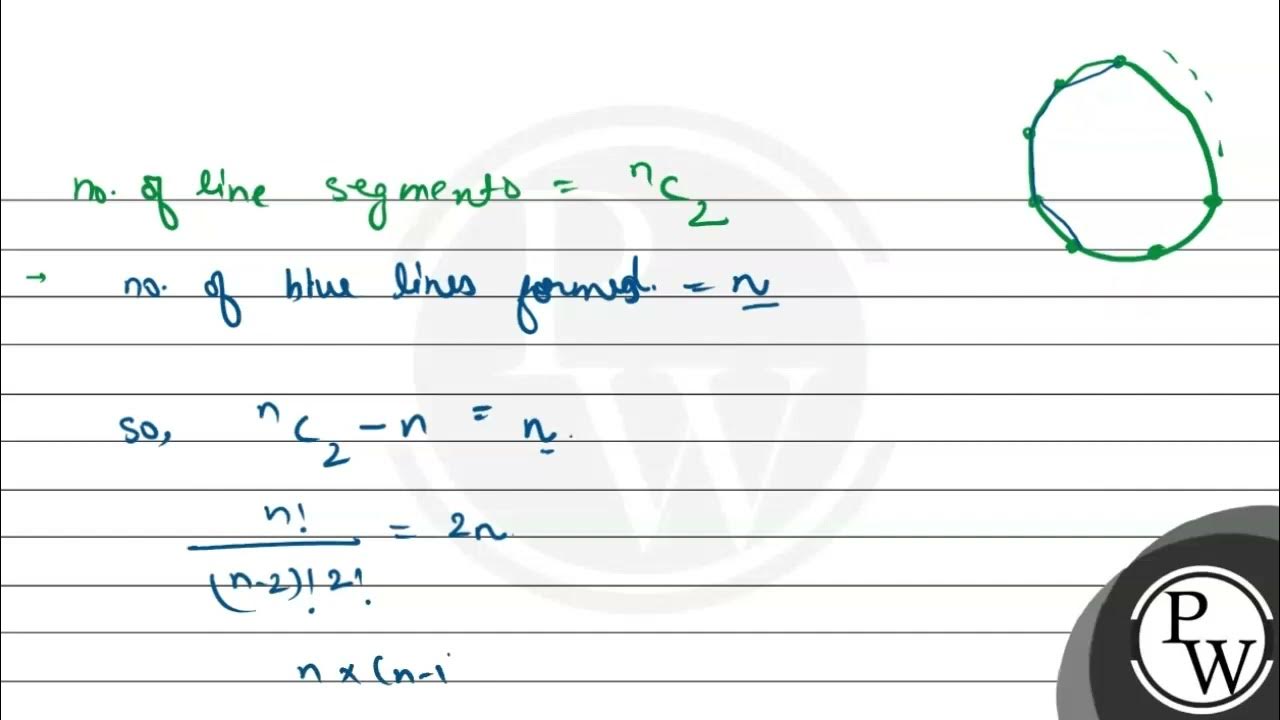 no. of line segments = ⁿC₂
→ no. of blue lines formed. = n
so, ⁿC₂ - n = n.
n! / (n-2)! 2! = 2n
n × (n-1
PW
PW